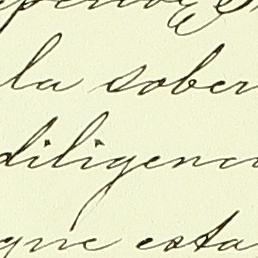 la sober
diligenci
que esta